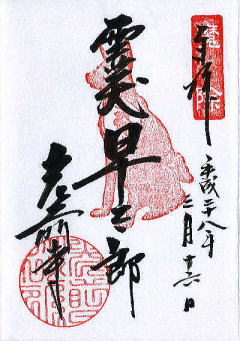 魔除
奉拝
平成二十八年
三月十六日
霊犬
早太郎
光前寺